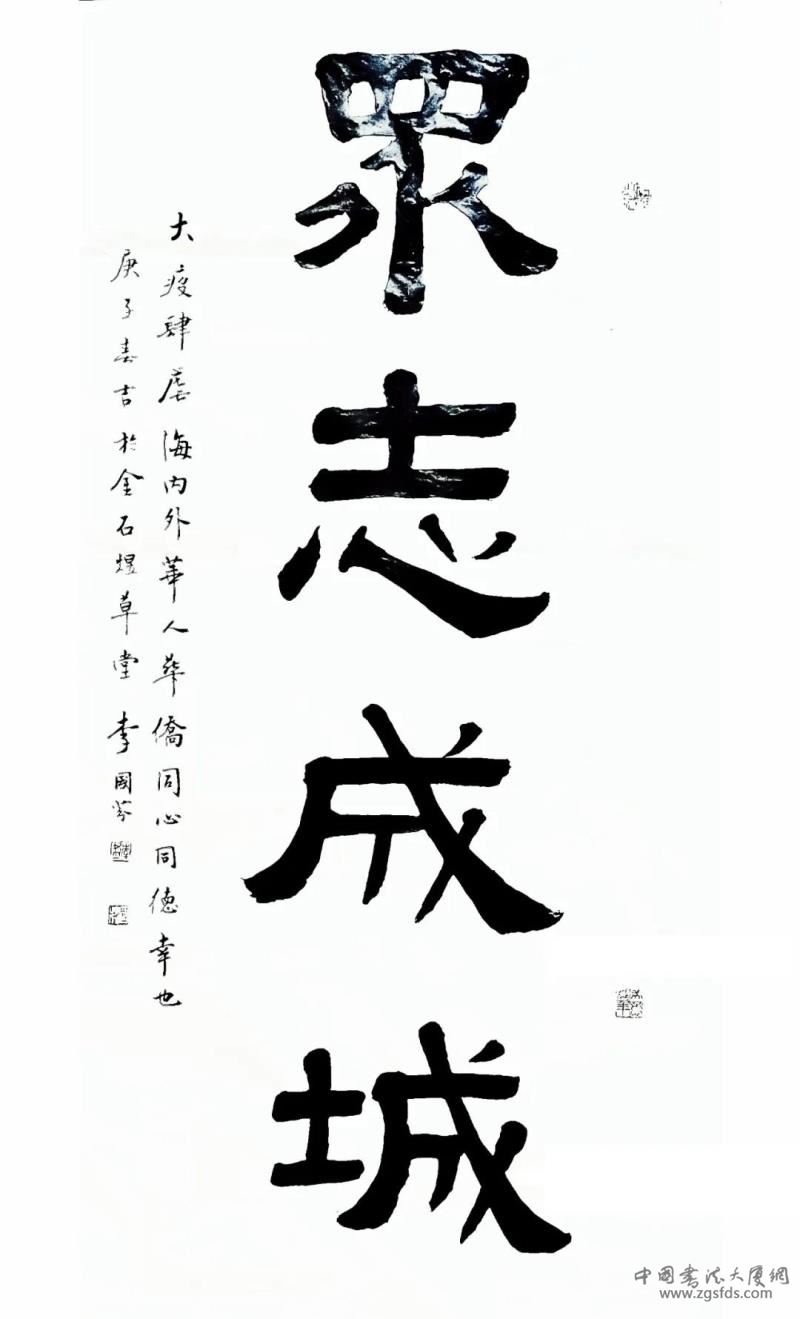 眾志成城
大疫肆虐海内外華人華僑同心同德幸也
庚子春吉於金石煜草堂李國芬
中國書法大廈網
www.zgsfds.com